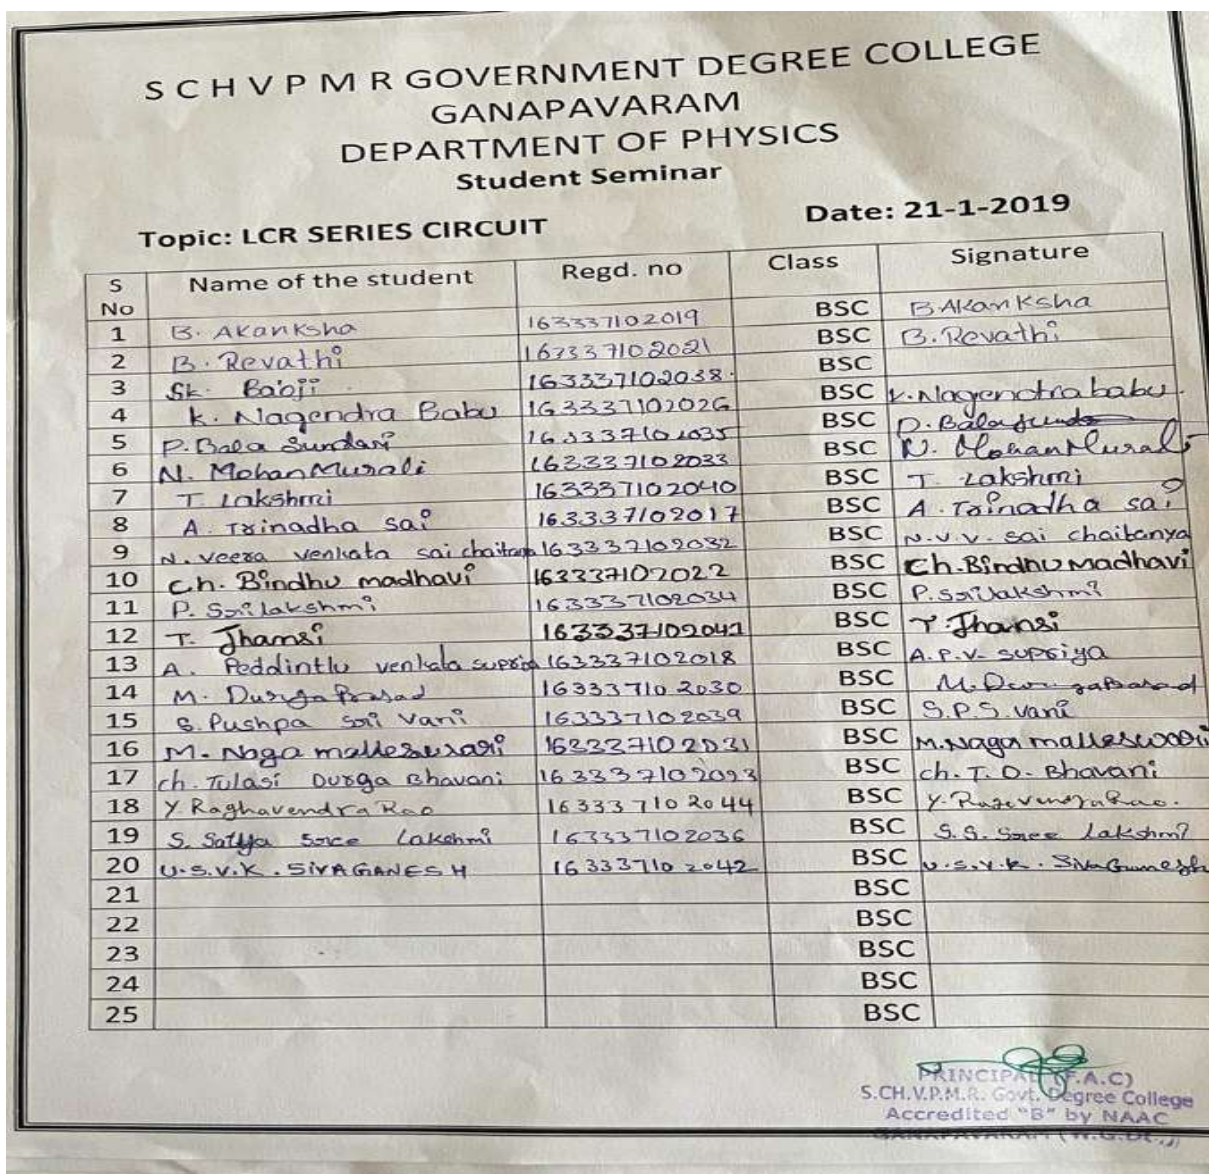 S C H V P M R GOVERNMENT DEGREE COLLEGE
GANAPAVARAM
DEPARTMENT OF PHYSICS
Student Seminar
Topic: LCR SERIES CIRCUIT Date: 21-1-2019
S No Name of the student Regd. no Class Signature
1 B. Akanksha 163337102019 BSC B Akanksha
2 B. Revathi 163337102021 BSC B. Revathi
3 Sk. Babji 163337102038. BSC
4 K. Nagendra Babu 163337102026 BSC K. Nagendra babu.
5 P. Bala Sundari 163337102035 BSC
6 N. Mohan Murali 163337102033 BSC N. Mohan Murali
7 T. Lakshmi 163337102040 BSC T. Lakshmi
8 A. Trinadha sai 163337102017 BSC A. Trinadha sai
9 N. veera venkata sai chaitanya 163337102032 BSC N.V.V. sai chaitanya
10 Ch. Bindhu madhavi 163337102022 BSC Ch. Bindhu Madhavi
11 P. Srilakshmi 163337102034 BSC P. Srilakshmi
12 T. Jhansi 163337102041 BSC T Jhansi
13 A. Peddintlu venkata supriya 163337102018 BSC A.P.V. supriya
14 M. Durga Prasad 163337102030 BSC M. Durga Prasad
15 S. Pushpa Sri Vani 163337102039 BSC S.P.S. vani
16 M. Naga malleswari 163337102031 BSC M. Naga malleswari
17 ch. Tulasi Durga Bhavani 163337102023 BSC ch. T. D. Bhavani
18 Y. Raghavendra Rao 163337102044 BSC
19 S. Satya Sree Lakshmi 163337102036 BSC S.S. Sree Lakshmi
20 U.S.V.K. SIVAGANESH 163337102042 BSC U.S.V.K. SivaGanesh
21 BSC
22 BSC
23 BSC
24 BSC
25 BSC
PRINCIPAL (F.A.C)
S.CH.V.P.M.R. Govt. Degree College
Accredited "B" by NAAC
GANAPAVARAM (W.G.Dt.,)